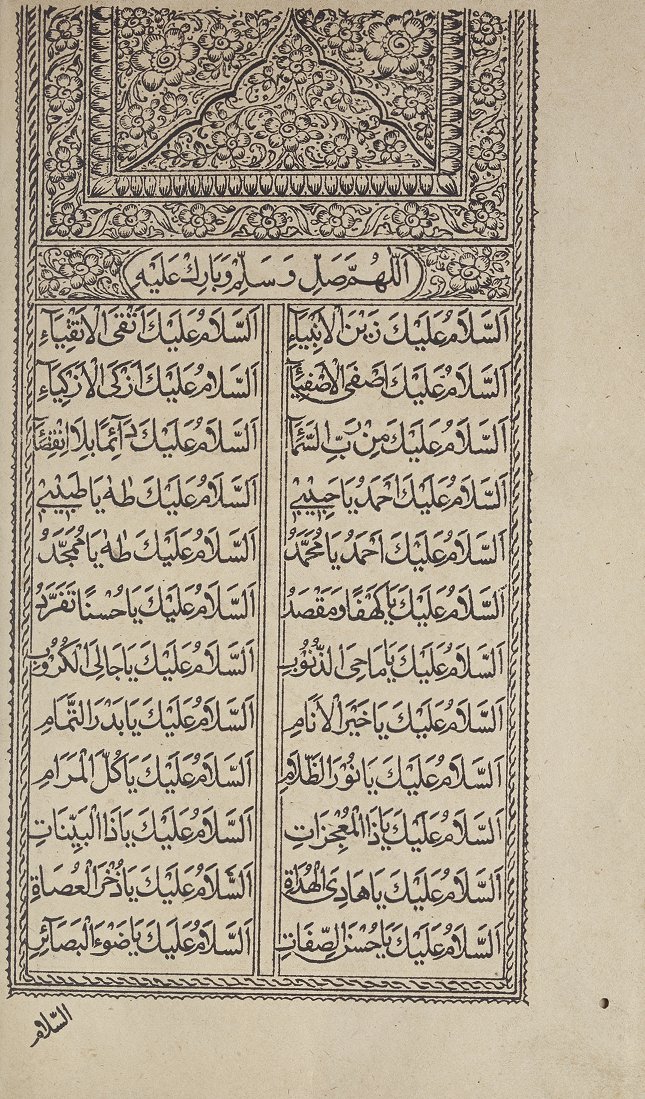 اَللّٰهُمَّ صَلِّ وَسَلِّمْ وَبَارِكْ عَلَيْهِ
اَلسَّلَامُ عَلَيْكَ زَيْنَ الْاَنْبِيَاءِ اَلسَّلَامُ عَلَيْكَ اَتْقَى الْاَتْقِيَاءِ
اَلسَّلَامُ عَلَيْكَ اَصْفَى الْاَصْفِيَاءِ اَلسَّلَامُ عَلَيْكَ اَزْكَى الْاَزْكِيَاءِ
اَلسَّلَامُ عَلَيْكَ مِنْ رَبِّ السَّمَآءِ اَلسَّلَامُ عَلَيْكَ دَآئِمًا بِلَا انْقِضَآءِ
اَلسَّلَامُ عَلَيْكَ اَحْمَدُ يَا حَبِيْبِيْ اَلسَّلَامُ عَلَيْكَ طٰهٰ يَا طَبِيْبِيْ
اَلسَّلَامُ عَلَيْكَ اَحْمَدُ يَا مُحَمَّدُ اَلسَّلَامُ عَلَيْكَ طٰهٰ يَا مُمَجَّدُ
اَلسَّلَامُ عَلَيْكَ يَا كَهْفًا وَمَقْصَدُ اَلسَّلَامُ عَلَيْكَ يَا حُسْنًا تَفَرَّدُ
اَلسَّلَامُ عَلَيْكَ يَا مَاحِىَ الذُّنُوْبِ اَلسَّلَامُ عَلَيْكَ يَا جَالِىَ الْكُرُوْبِ
اَلسَّلَامُ عَلَيْكَ يَا خَيْرَ الْاَنَامِ اَلسَّلَامُ عَلَيْكَ يَا بَدْرَ التَّمَامِ
اَلسَّلَامُ عَلَيْكَ يَا نُوْرَ الظَّلَامِ اَلسَّلَامُ عَلَيْكَ يَا كُلَّ الْمَرَامِ
اَلسَّلَامُ عَلَيْكَ يَا ذَا الْمُعْجِزَاتِ اَلسَّلَامُ عَلَيْكَ يَا ذَا الْبَيِّنَاتِ
اَلسَّلَامُ عَلَيْكَ يَا هَادِىَ الْهُدَاةِ اَلسَّلَامُ عَلَيْكَ يَا ذُخْرَ الْعُصَاةِ
اَلسَّلَامُ عَلَيْكَ يَا حُسْنَ الصِّفَاتِ اَلسَّلَامُ عَلَيْكَ يَا ضَوْءَ الْبَصَآئِرِ
السّلام